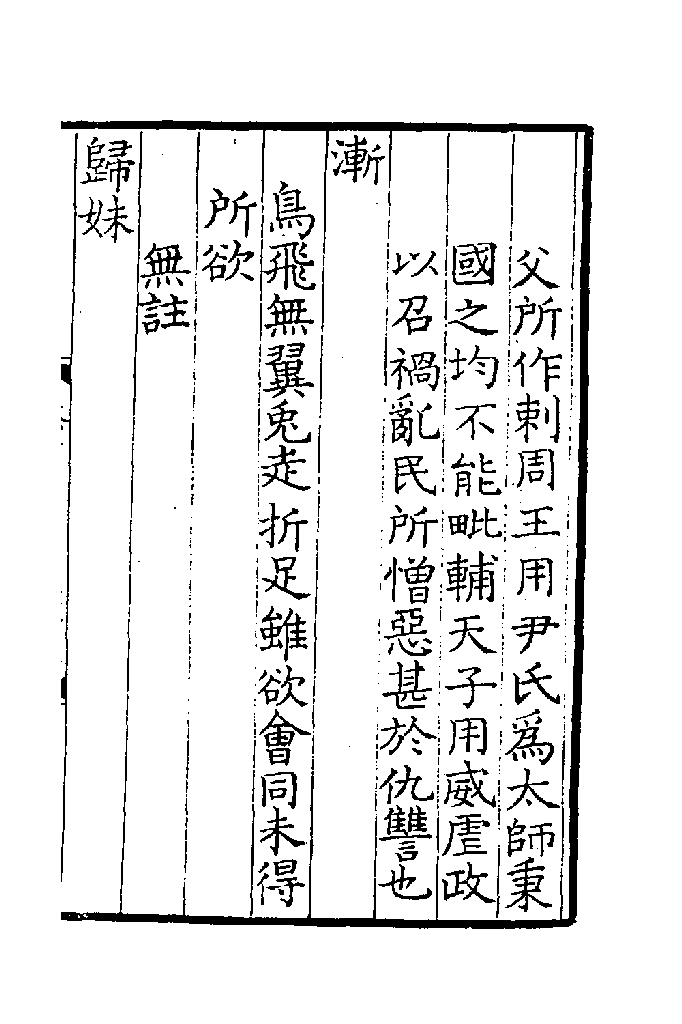 父所作刺周王用尹氏爲太師秉
國之均不能毗輔天子用威虐政
以召禍亂民所憎惡甚於仇讐也
漸
鳥飛無翼兎走折足雖欲會同未得
所欲
無註
歸妹